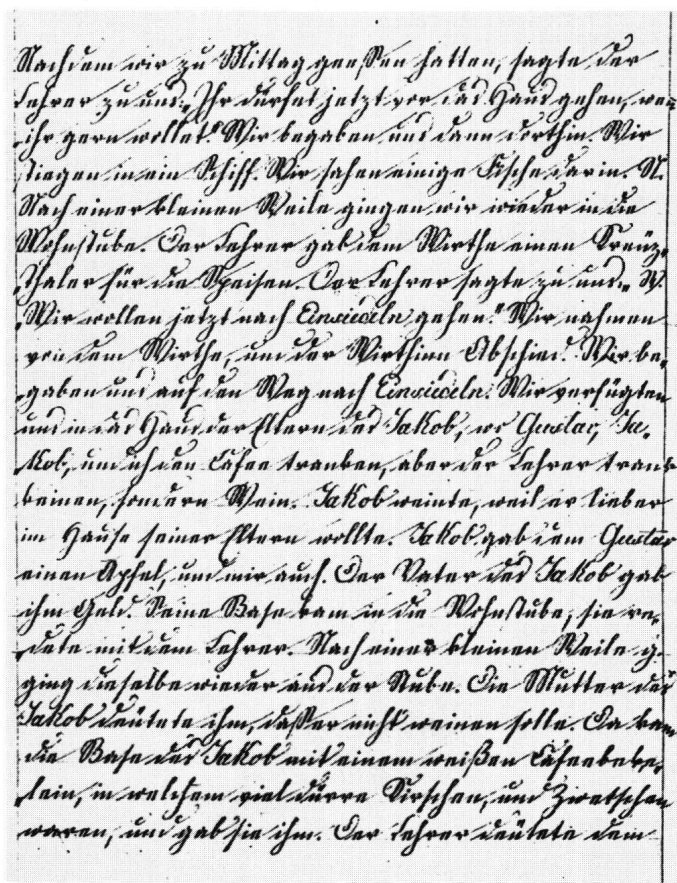 Nachdem wir zu Mittag geessen hatten, sagte der
Lehrer zu uns: „Ihr dürfet jetzt vor das Haus gehen, wen̄
ihr gern wollet.“ Wir begaben uns dann dorthin. Wir
stiegen in ein Schiff. Wir sahen einige Fische darin. N.
Nach einer kleinen Weile gingen wir wieder in die
Wohnstube. Der Lehrer gab dem Wirthe einen Kreuz-
Thaler für die Speisen. Der Lehrer sagte zu uns: „W.
„Wir wollen jetzt nach Einsiedeln gehen.“ Wir nahmen
von dem Wirthe, und der Wirthinn Abschied. Wir be-
gaben uns auf den Weg nach Einsiedeln. Wir verfügten
uns in das Haus der Eltern des Jakob, wo Gustav, Ja-
kob, und ich den Cafee tranken, aber der Lehrer trank
keinen, sondern Wein. Jakob weinte, weil er lieber
im Hause seiner Eltern wollte. Jakob gab dem Gustav
einen Apfel, und mir auch. Der Vater des Jakob gab
ihm Geld. Seine Base kam in die Wohnstube; sie re-
dete mit dem Lehrer. Nach einer kleinen Weile g.
ging dieselbe wieder aus der Stube. Die Mutter des
Jakob deutete ihm, daß er nicht weinen solle. Da kam
die Base des Jakob mit einem weißen
lein, in welchem viel dürre Kirschen, und Zwetschen
waren, und gab sie ihm. Der Lehrer deutete dem